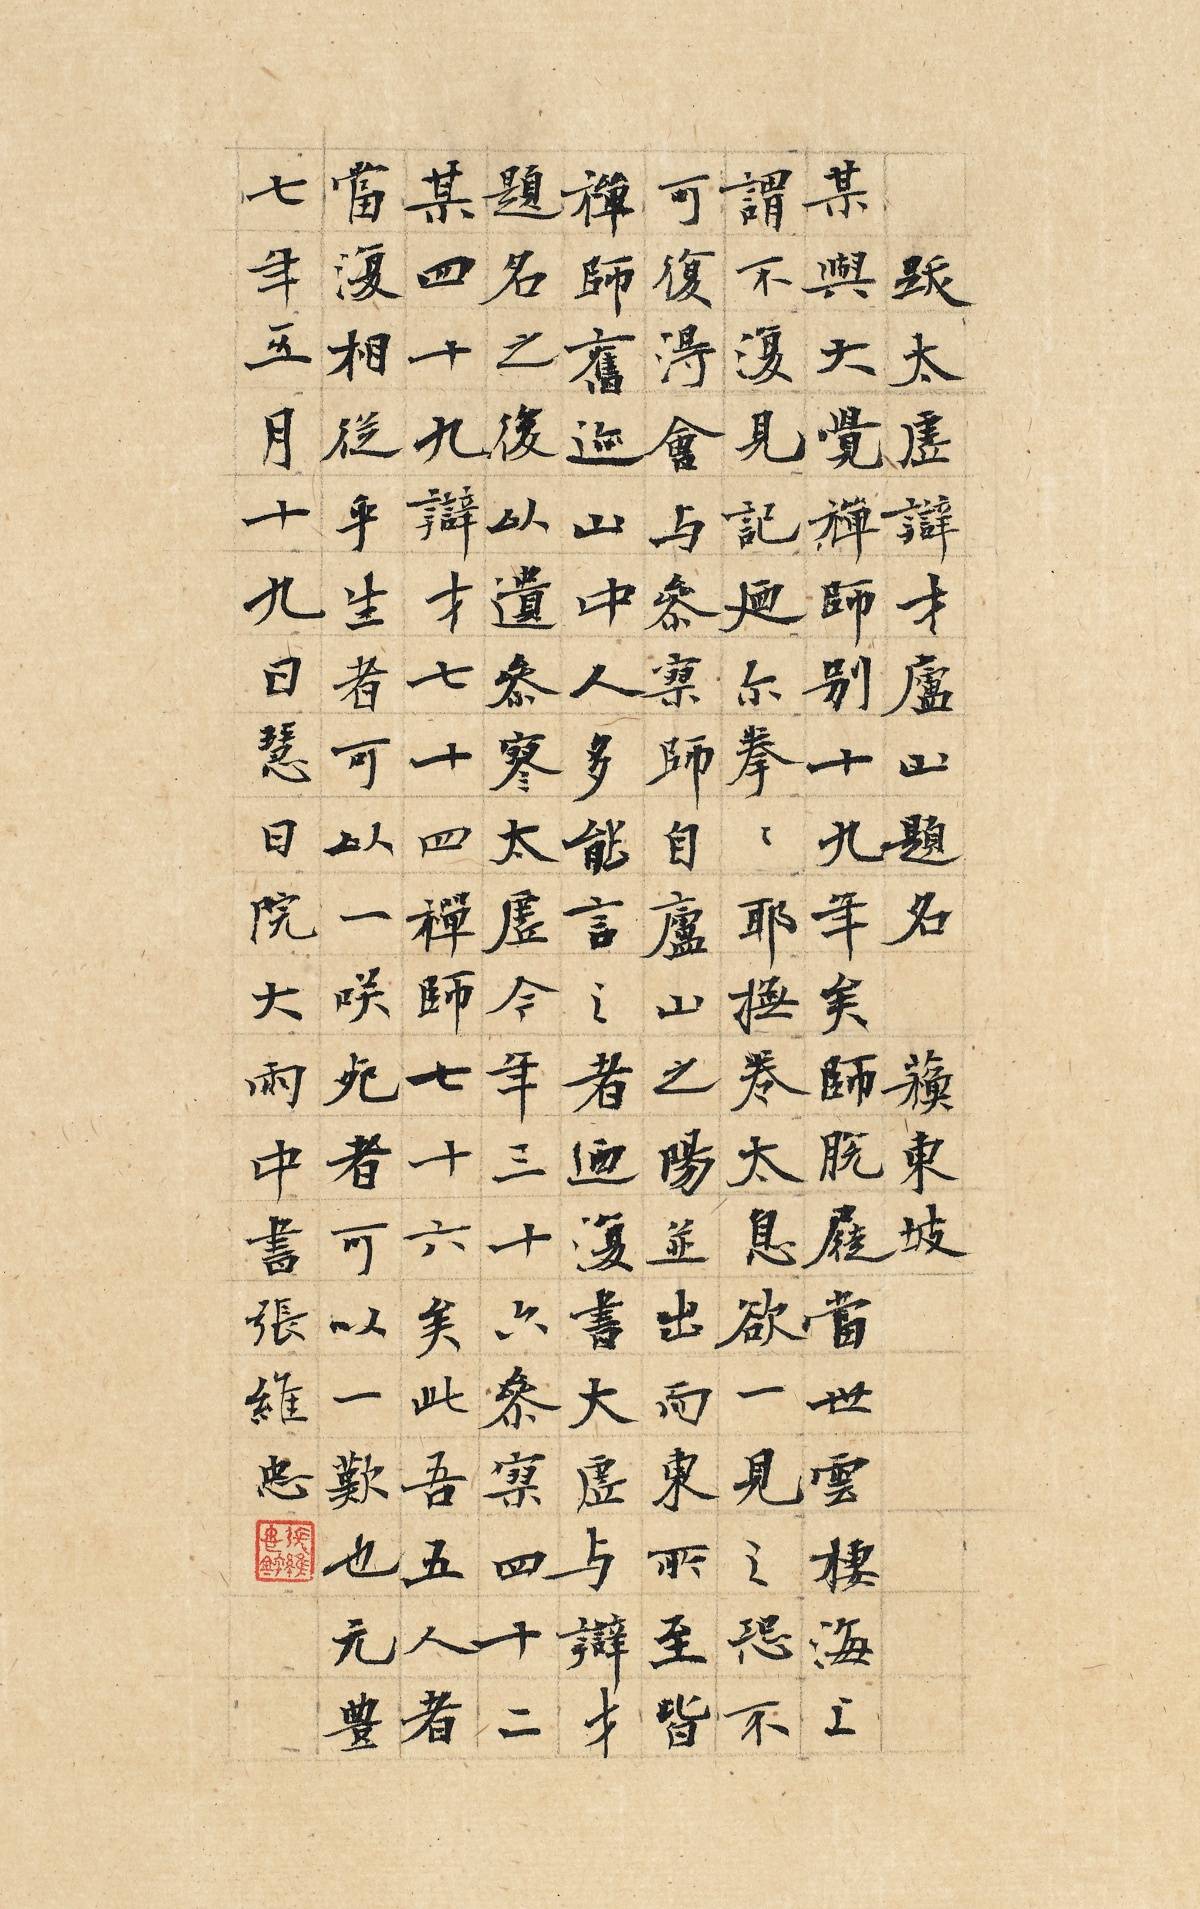 跋太虛辯才廬山題名 蘇東坡
某與大覺禪師別十九年矣師脫屣當世雲棲海上
謂不復見記迺尓拳〻耶撫卷太息欲一見之恐不
可復得會与叅寥師自廬山之陽並出而東所至皆
禪師舊迹山中人多能言之者迺復書大虛与辯才
題名之後以遺叅寥太虛今年三十六叅寥四十二
某四十九辯才七十四禪師七十六矣此吾五人者
當復相從乎生者可以一咲死者可以一歎也元豊
七年五月十九日慧日院大雨中書張維忠